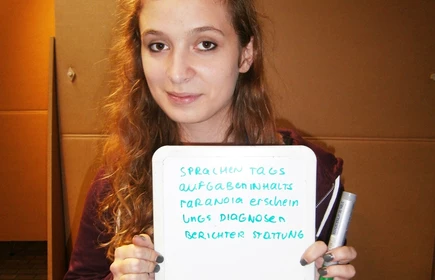 SPRACHEN TAGS
AUFGABEN INHALTS
PARANOIA erschein
UNGS DIAGNOSEN
BERICHTER STATTUNG